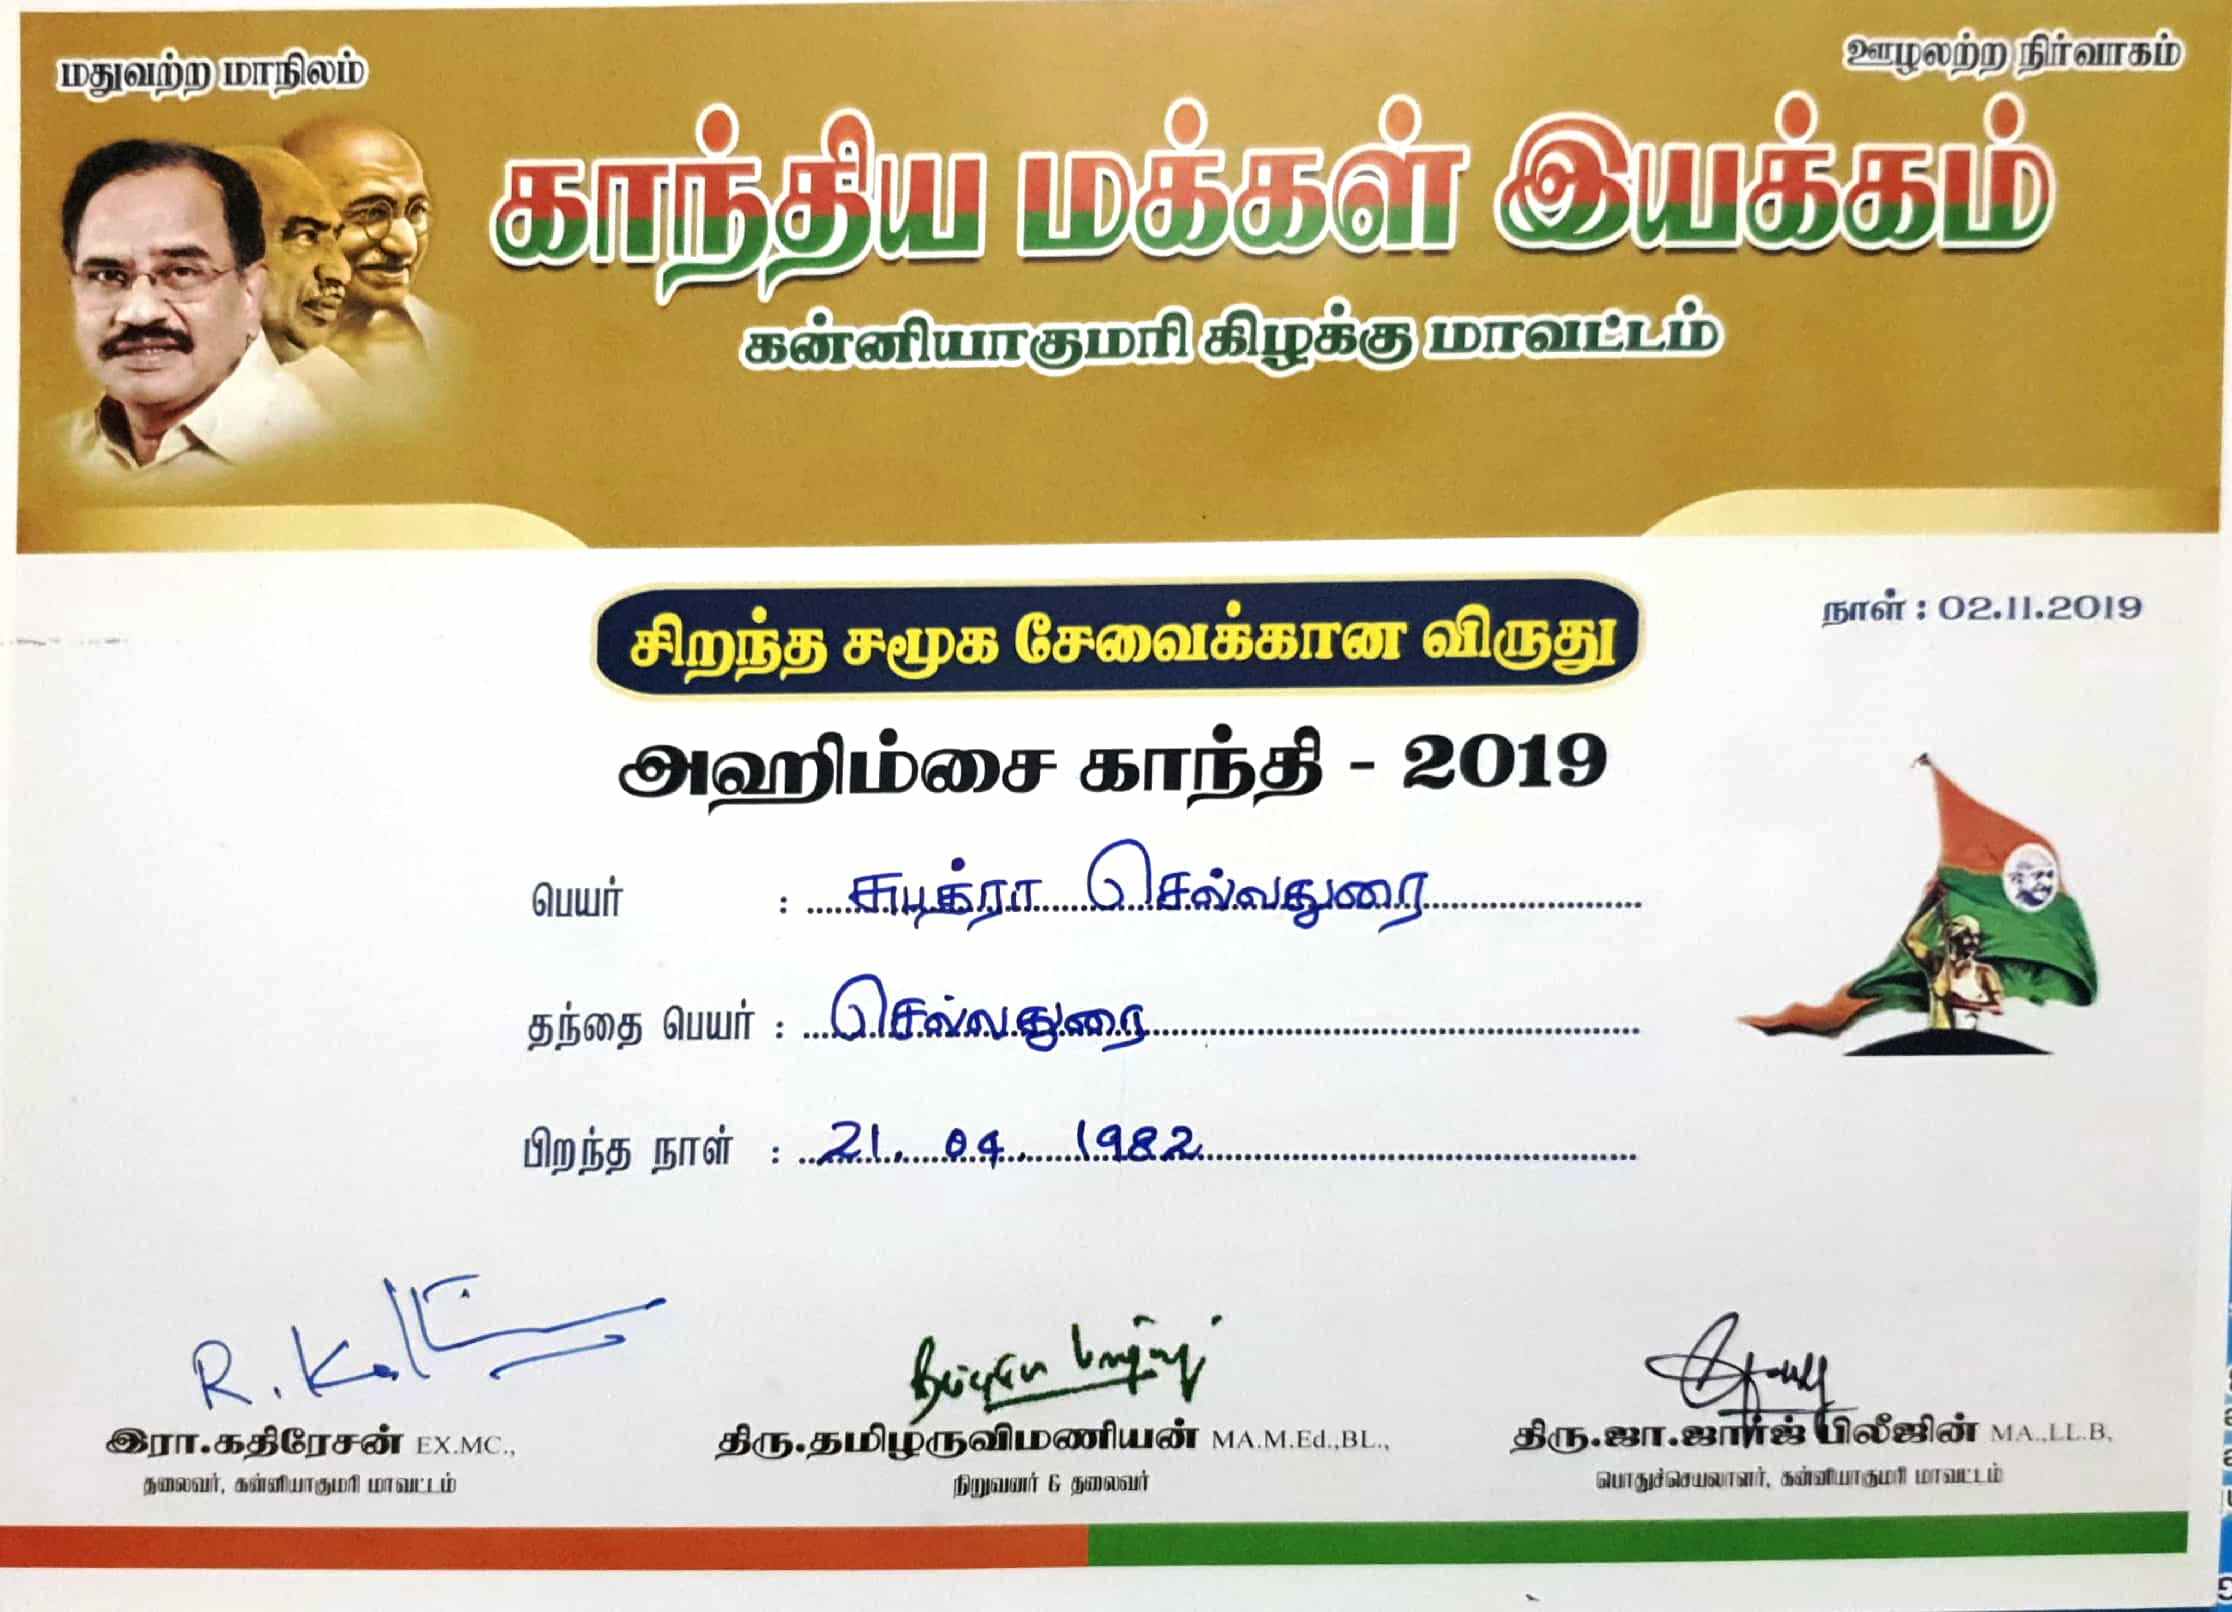 மதுவற்ற மாநிலம்
ஊழலற்ற நிர்வாகம்
காந்திய மக்கள் இயக்கம்
கன்னியாகுமரி கிழக்கு மாவட்டம்
நாள் : 02.11.2019
சிறந்த சமூக சேவைக்கான விருது
அஹிம்சை காந்தி - 2019
பெயர் : சுபத்ரா செல்வதுரை
தந்தை பெயர் : செல்வதுரை
பிறந்த நாள் : 21. 04. 1982
இரா.கதிரேசன் EX.MC.,
தலைவர், கன்னியாகுமரி மாவட்டம்
திரு.தமிழருவிமணியன் MA.M.Ed.,BL.,
நிறுவனர் & தலைவர்
திரு.ஜா.ஜார்ஜ் பிலீஜின் MA.,LL.B,
பொதுச்செயலாளர், கன்னியாகுமரி மாவட்டம்